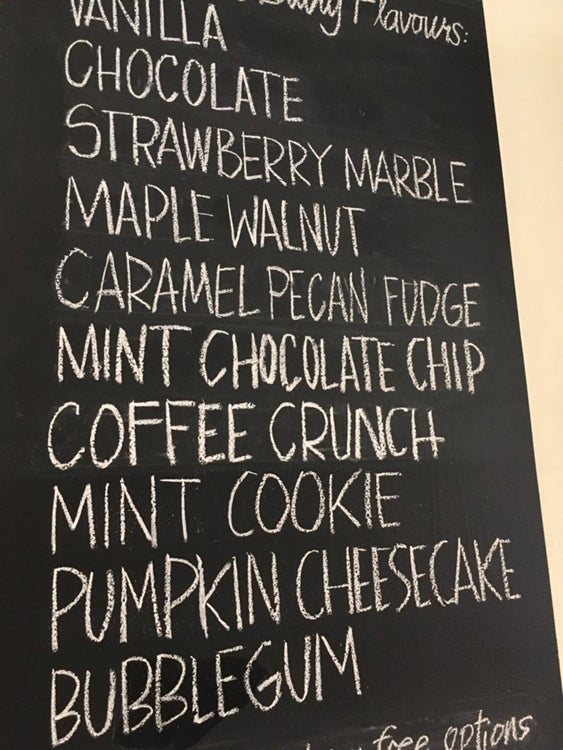 Flavours:
VANILLA
CHOCOLATE
STRAWBERRY MARBLE
MAPLE WALNUT
CARAMEL PECAN FUDGE
MINT CHOCOLATE CHIP
COFFEE CRUNCH
MINT COOKIE
PUMPKIN CHEESECAKE
BUBBLEGUM
free options